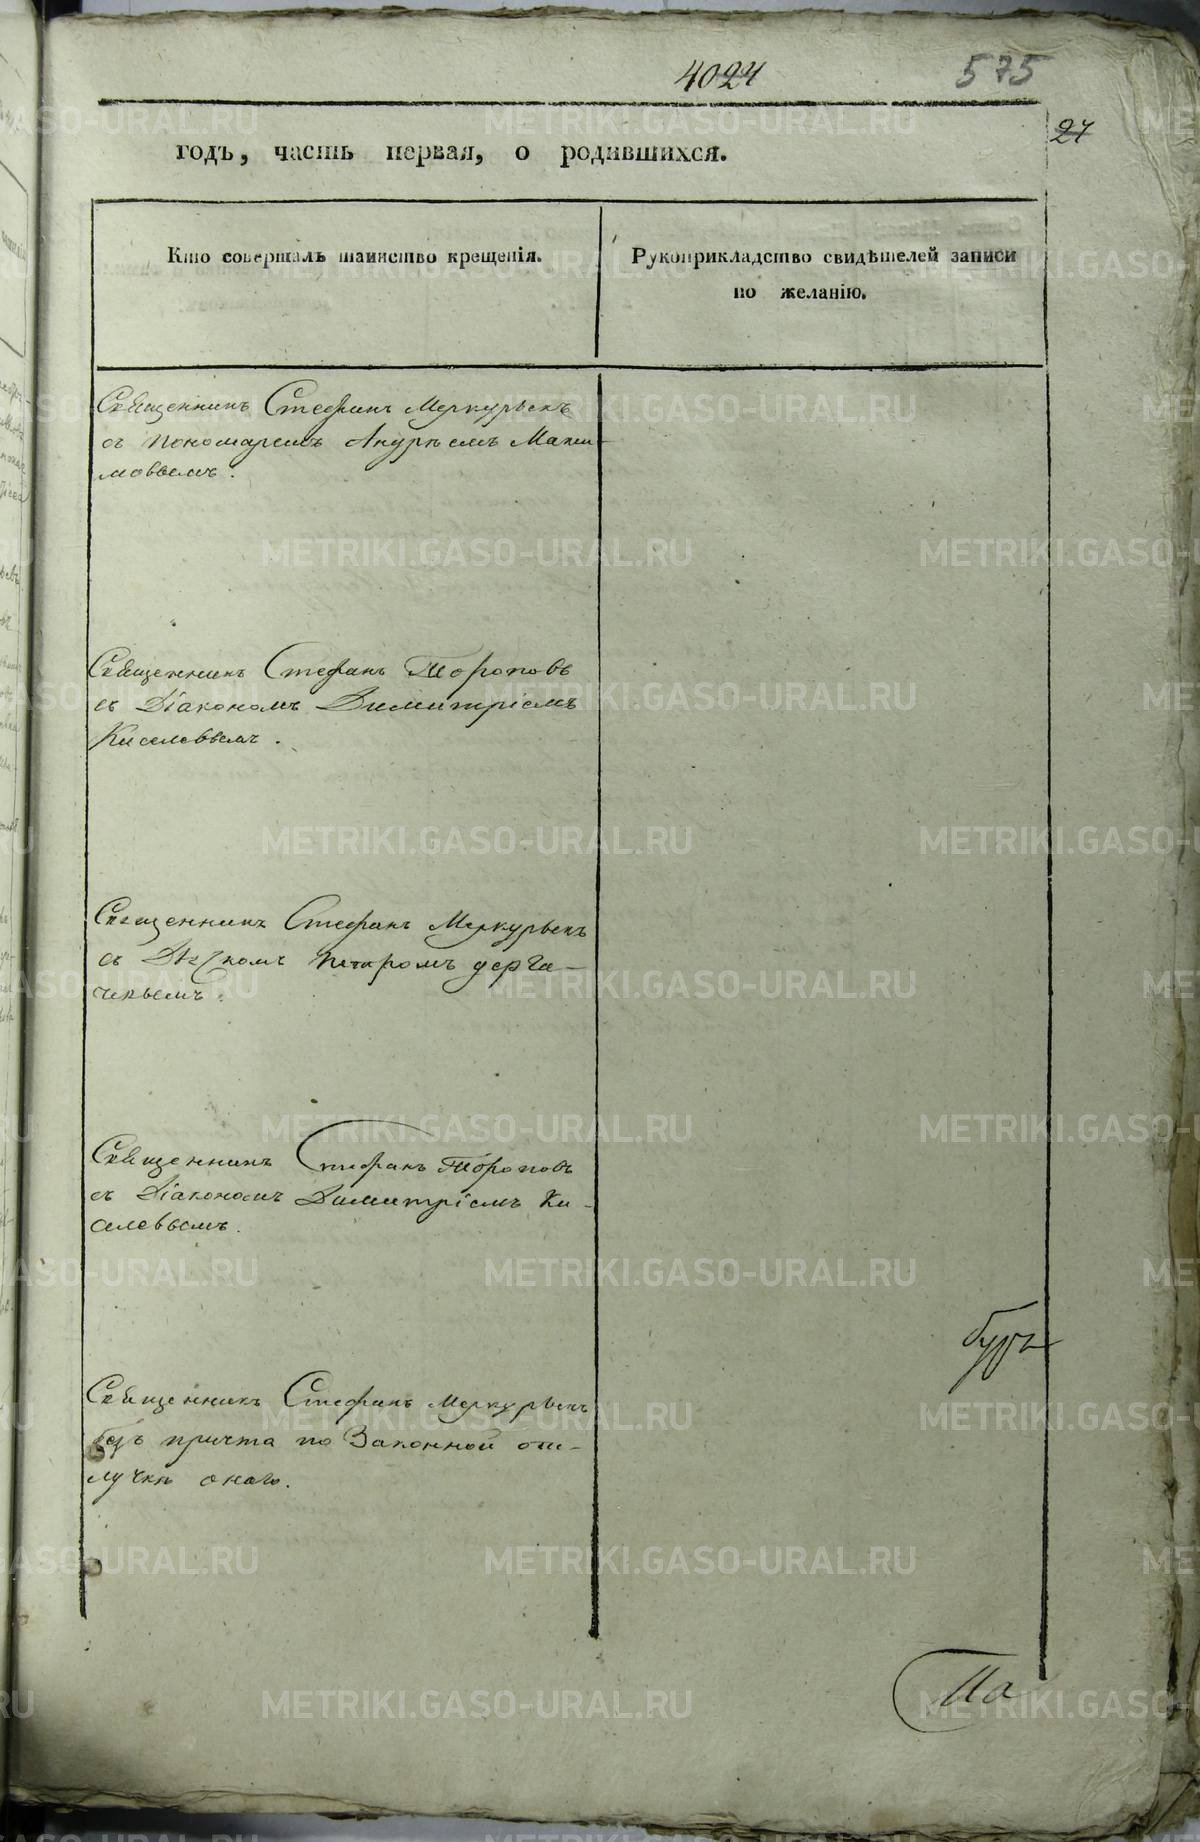 4024 575
27
годъ, часть первая, о родившихся.
Кто совершалъ таинство крещенія.
Рукоприкладство свидѣтелей записи
по желанію.
Священникъ Стефанъ Меркурьевъ
съ пономаремъ Андреемъ Макси-
мовымъ.
Священникъ Стефанъ Тороповъ
съ Діакономъ Димитріемъ
Киселевымъ.
Священникъ Стефанъ Меркурьевъ
съ Дьячкомъ Петромъ Дерга-
чевымъ.
Священникъ Стефанъ Тороповъ
съ Діакономъ Димитріемъ Ки-
селевымъ.
Священникъ Стефанъ Меркурьевъ
безъ причта по Законной от-
лучкѣ онаго.
METRIKI.GASO-URAL.RU